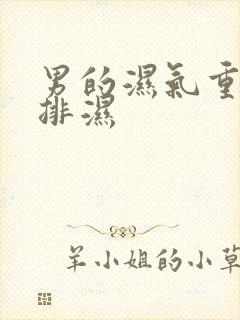 男的濕氣重
排濕
羊小姐的小草